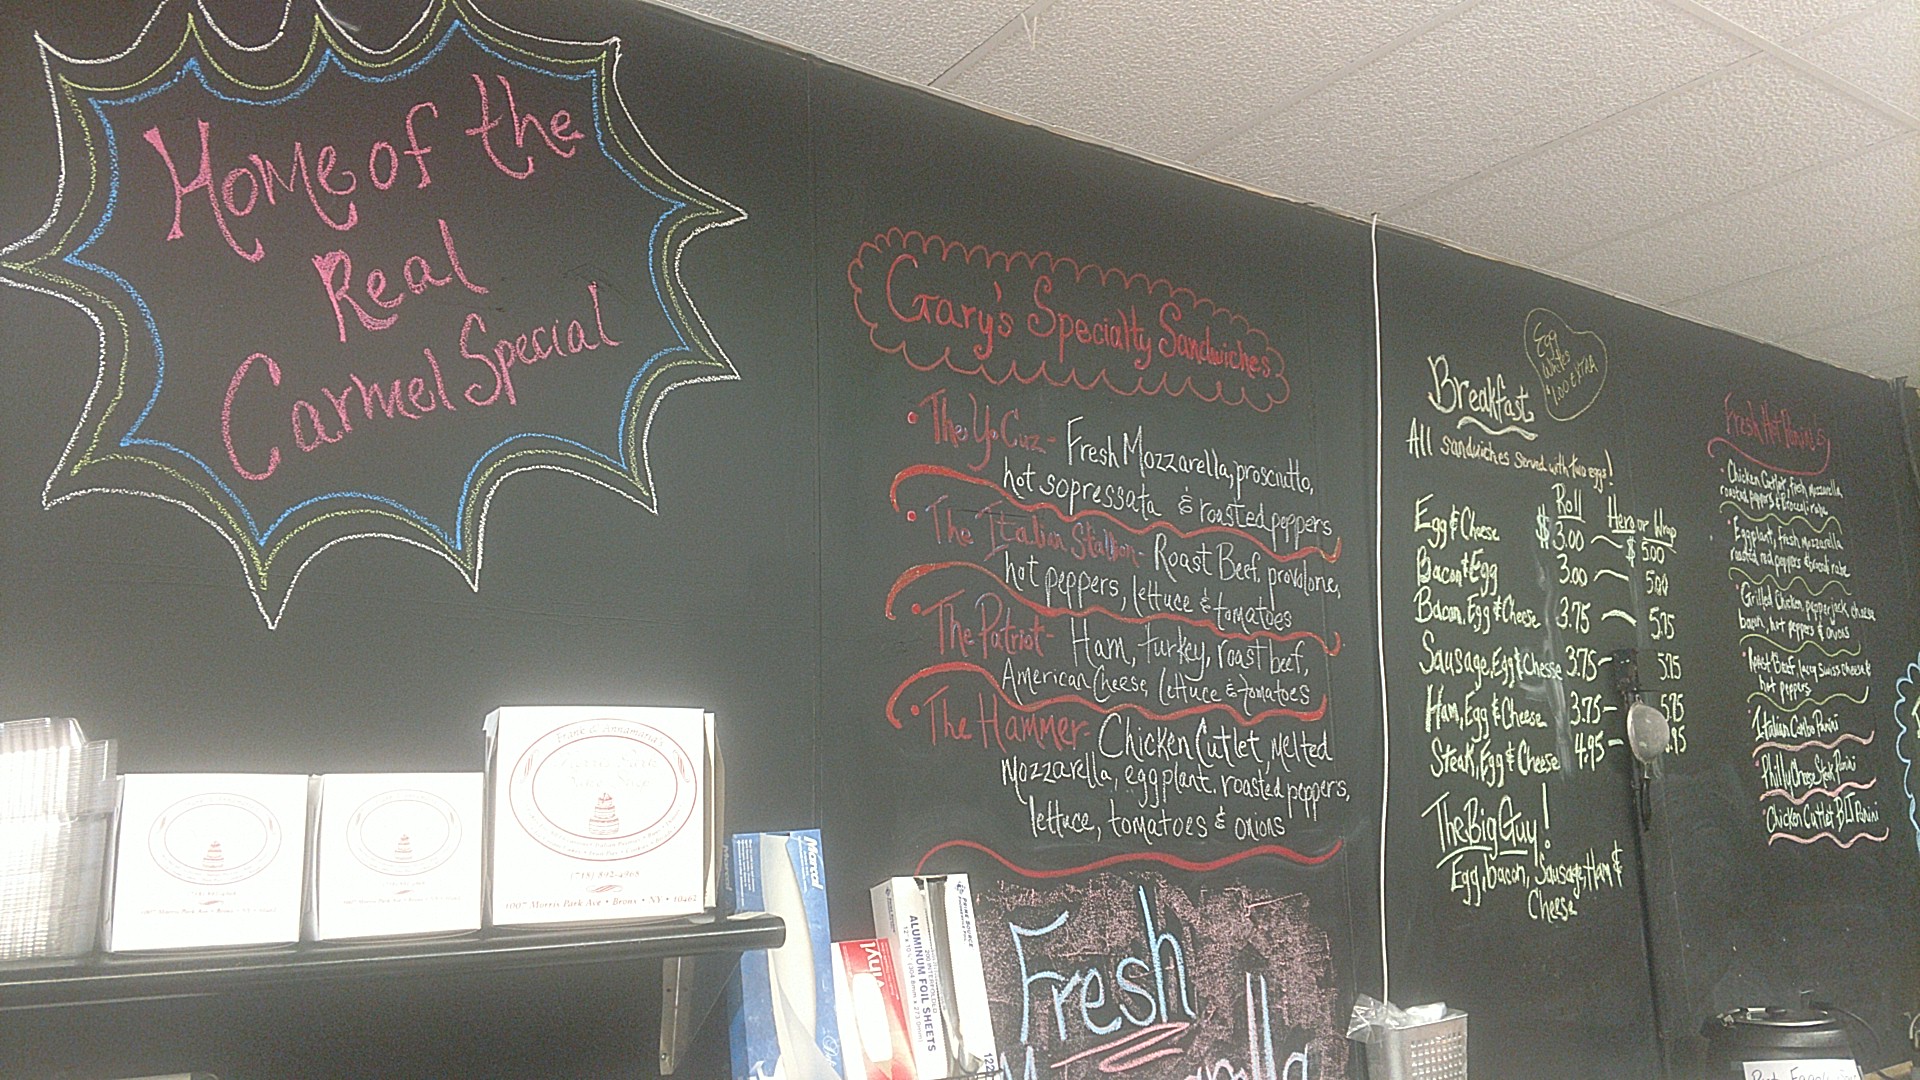 Home of the
Real
Carmel Special
Gary's Specialty Sandwiches
• The Yo Cuz - Fresh Mozzarella, prosciutto,
hot sopressata & roasted peppers
• The Italian Stallion - Roast Beef, provolone,
hot peppers, lettuce & tomatoes
• The Patriot - Ham, turkey, roast beef,
American Cheese, lettuce & tomatoes
• The Hammer - Chicken Cutlet, melted
Mozzarella, eggplant, roasted peppers,
lettuce, tomatoes & onions
Fresh
Egg
Whites
$1.00 extra
Breakfast
All sandwiches served with two eggs!
Roll Hero or Wrap
Egg & Cheese $3.00 $5.00
Bacon & Egg 3.00 5.00
Bacon, Egg & Cheese 3.75 5.75
Sausage, Egg & Cheese 3.75 5.75
Ham, Egg & Cheese 3.75 5.75
Steak, Egg & Cheese 4.95
The Big Guy!
Egg, bacon, Sausage, Ham &
Cheese
Fresh Hot Panini's
• Chicken Cutlet, fresh mozzarella,
roasted peppers & Broccoli rabe
• Eggplant, fresh mozzarella
roasted red peppers & broccoli rabe
• Grilled Chicken, pepperjack cheese
bacon, hot peppers & onions
• Roast Beef, lacey swiss cheese &
hot peppers
• Italian Combo Panini
• Philly Cheese Steak Panini
• Chicken Cutlet BLT Panini
Frank & Annamaria's
Morris Park
Bake Shop
(718) 892-4968
1007 Morris Park Ave • Bronx • NY • 10462
Marcal
Vinyl
ALUMINUM FOIL SHEETS
PRIME SOURCE